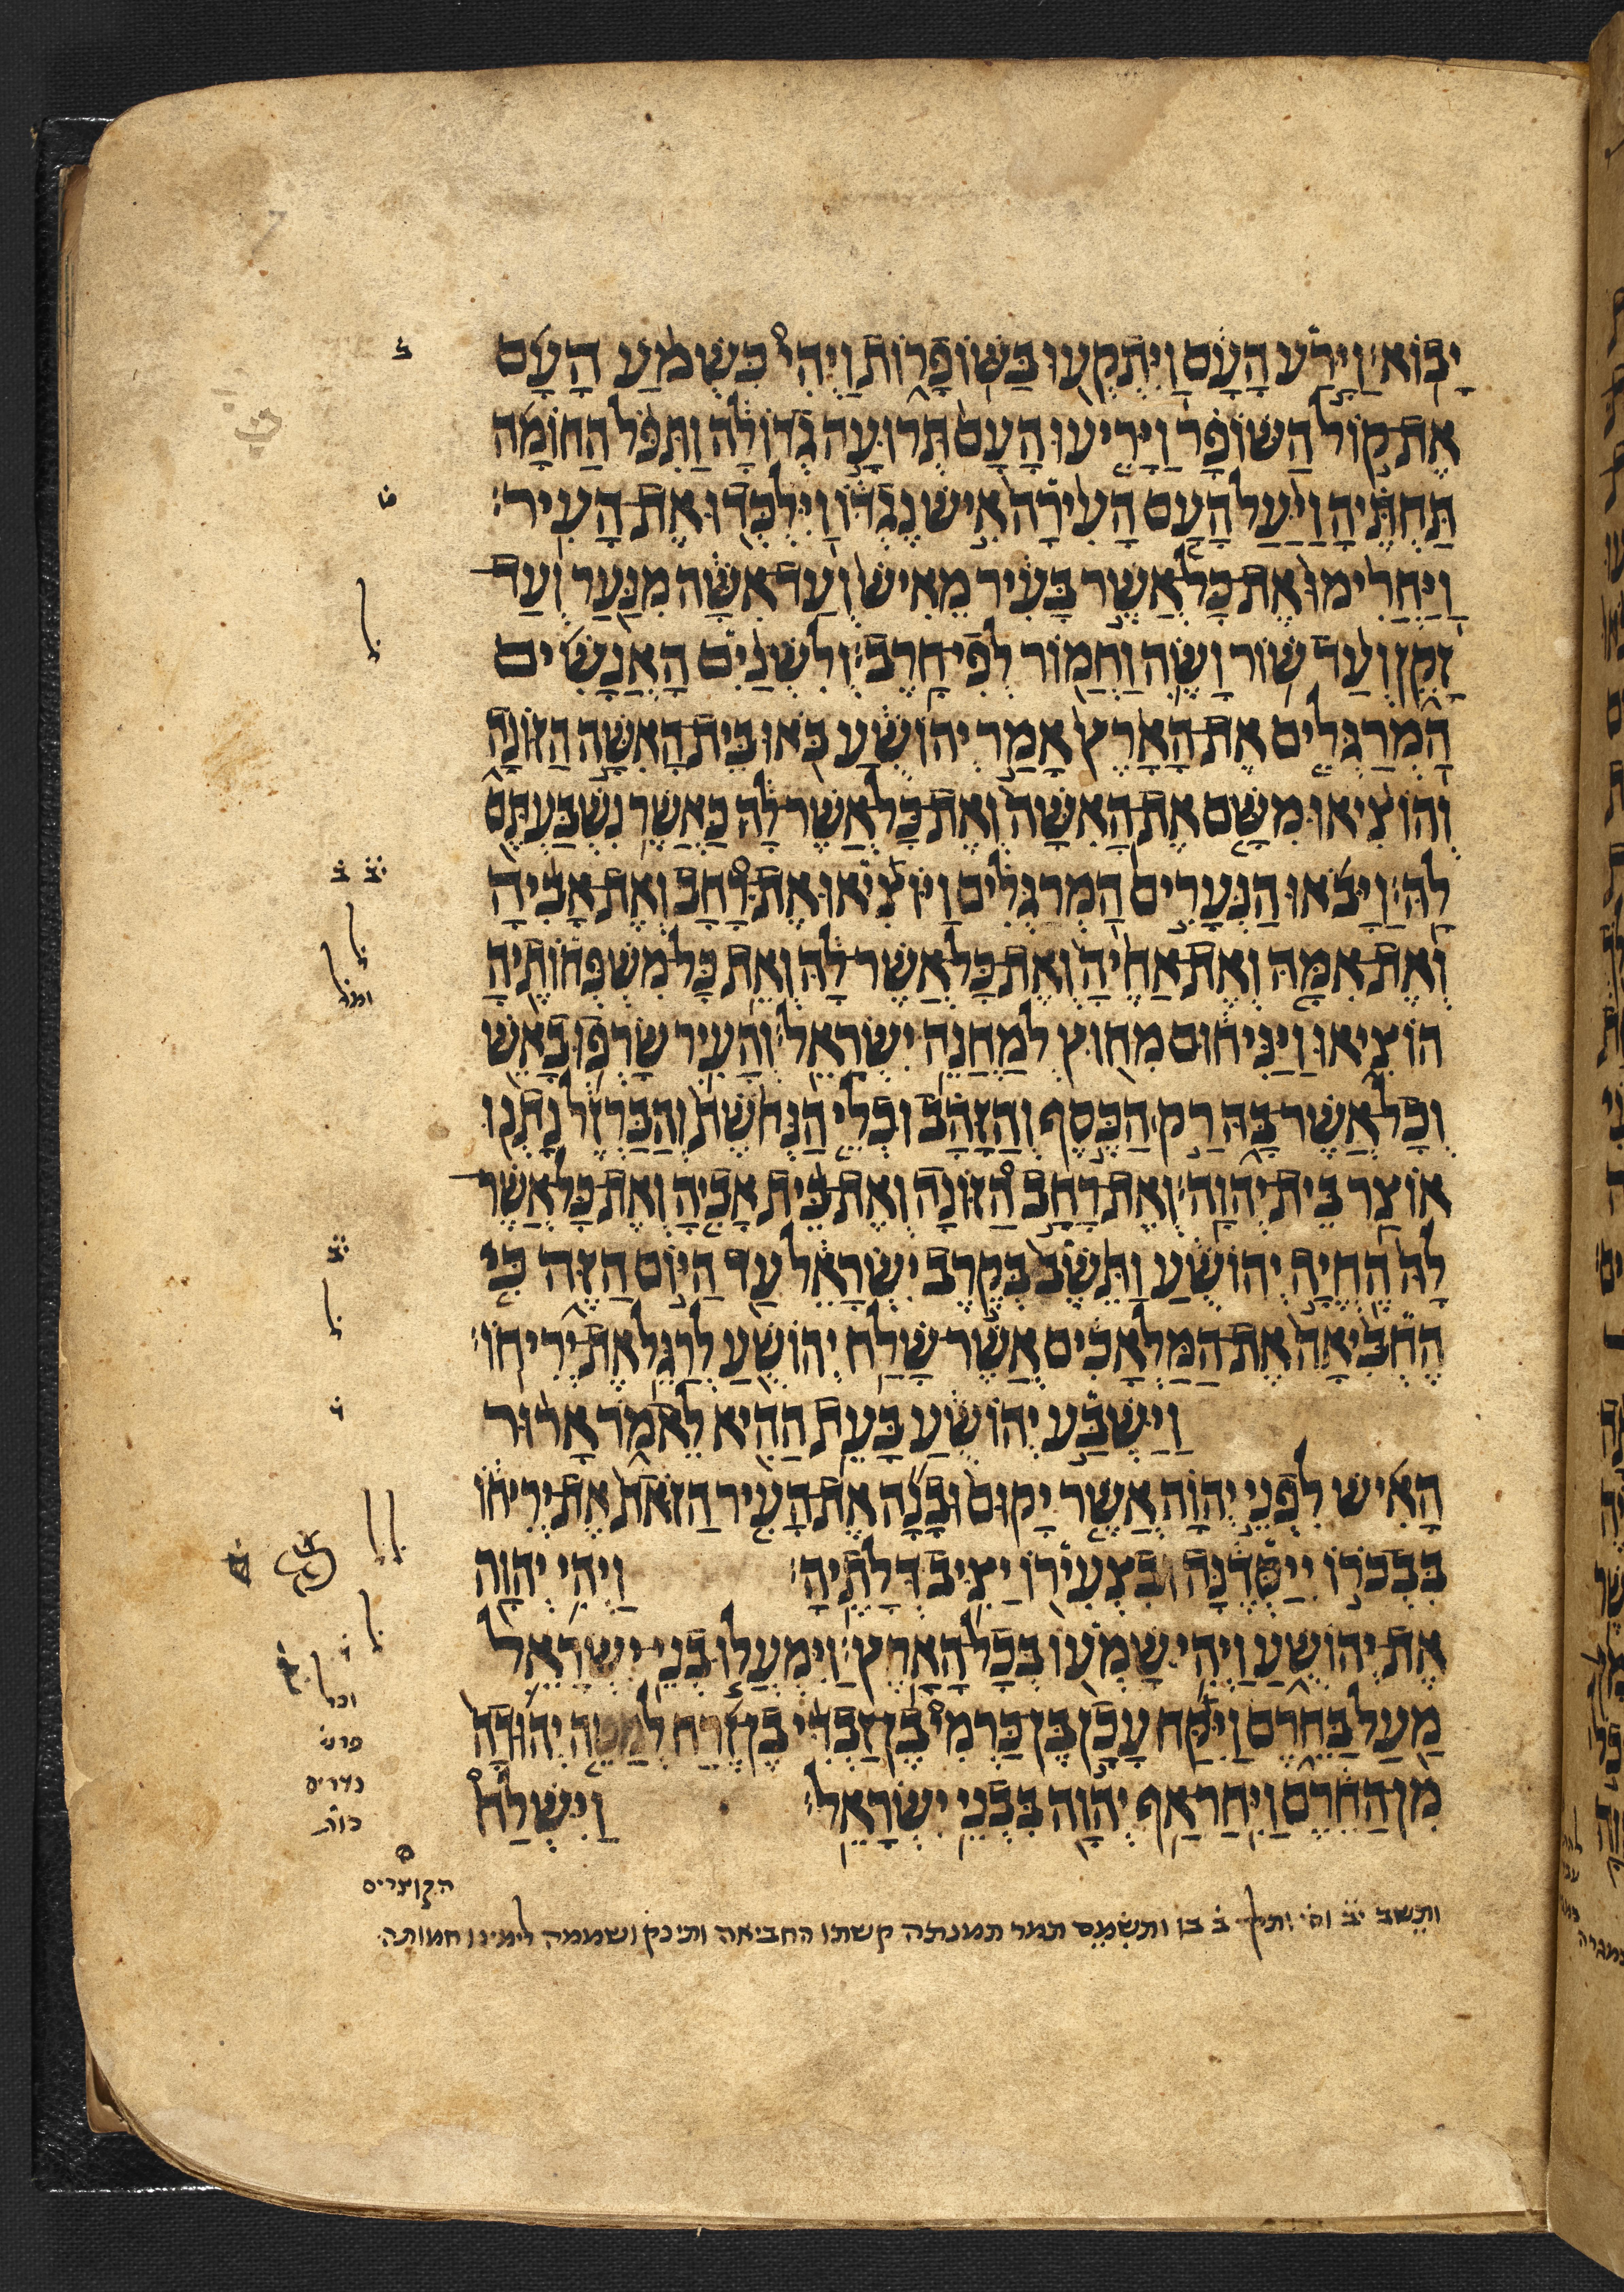 יָבֽוֹא׃ וַיָּ֣רַע הָעָ֔ם וַֽיִּתְקְע֖וּ בַּשׁוֹפָר֑וֹת וַיְהִי֩ כִּשְׁמֹ֨עַ הָעָ֜ם
אֶת־ק֣וֹל הַשּׁוֹפָ֗ר וַיָּרִ֤יעוּ הָעָם֙ תְּרוּעָ֣ה גְדוֹלָ֔ה וַתִּפֹּ֨ל הַחוֹמָ֜ה
תַּחְתֶּ֗יהָ וַיַּ֨עַל הָעָ֤ם הָעִ֙ירָה֙ אִ֣ישׁ נֶגְדּ֔וֹ וַֽיִּלְכְּד֖וּ אֶת־הָעִֽיר׃
וַֽיַּחֲרִ֙ימוּ֙ אֶת־כָּל־אֲשֶׁ֣ר בָּעִ֔יר מֵאִישׁ֙ וְעַד־אִשָּׁ֔ה מִנַּ֖עַר וְעַד־
זָקֵ֑ן וְעַ֨ד שׁ֥וֹר וָשֶׂ֛ה וַחֲמ֖וֹר לְפִי־חָֽרֶב׃ וְלִשְׁנַ֨יִם הָאֲנָשִׁ֜ים
הַֽמְרַגְּלִ֤ים אֶת־הָאָ֙רֶץ֙ אָמַ֣ר יְהוֹשֻׁ֔עַ בֹּ֖אוּ בֵּית־הָאִשָּׁ֣ה הַזּוֹנָ֑ה
וְהוֹצִ֨יאוּ מִשָּׁ֤ם אֶת־הָֽאִשָּׁה֙ וְאֶת־כָּל־אֲשֶׁר־לָ֔הּ כַּאֲשֶׁ֥ר נִשְׁבַּעְתֶּ֖ם
לָֽהּ׃ וַיָּבֹ֜אוּ הַנְּעָרִ֣ים הַֽמְרַגְּלִ֗ים וַיֹּצִ֡יאוּ אֶת־רָ֠חָב וְאֶת־אָבִ֨יהָ
וְאֶת־אִמָּ֤הּ וְאֶת־אַחֶ֙יהָ֙ וְאֶת־כָּל־אֲשֶׁר־לָ֔הּ וְאֵ֥ת כָּל־מִשְׁפְּחוֹתֶ֖יהָ
הוֹצִ֑יאוּ וַיַּ֨נִּיח֔וּם מִח֖וּץ לְמַחֲנֵ֥ה יִשְׂרָאֵֽל׃ וְהָעִ֛יר שָׂרְפ֥וּ בָאֵ֖שׁ
וְכָל־אֲשֶׁר־בָּ֑הּ רַ֣ק הַכֶּ֣סֶף וְהַזָּהָ֗ב וּכְלֵ֤י הַנְּחֹ֙שֶׁת֙ וְהַבַּרְזֶ֔ל נָתְנ֖וּ
אוֹצַ֥ר בֵּית־יְהוָֽה׃ וְֽאֶת־רָחָ֣ב הַ֠זּוֹנָה וְאֶת־בֵּ֨ית אָבִ֤יהָ וְאֶת־כָּל־אֲשֶׁר־
לָהּ֙ הֶחֱיָ֣ה יְהוֹשֻׁ֔עַ וַתֵּ֙שֶׁב֙ בְּקֶ֣רֶב יִשְׂרָאֵ֔ל עַ֖ד הַיּ֣וֹם הַזֶּ֑ה כִּ֤י
הֶחְבִּ֙יאָה֙ אֶת־הַמַּלְאָכִ֔ים אֲשֶׁר־שָׁלַ֥ח יְהוֹשֻׁ֖עַ לְרַגֵּ֥ל אֶת־יְרִיחֽוֹ׃
וַיַּשְׁבַּ֣ע יְהוֹשֻׁ֔עַ בָּעֵ֥ת הַהִ֖יא לֵאמֹ֑ר אָר֨וּר
הָאִ֜ישׁ לִפְנֵ֣י יְהוָ֗ה אֲשֶׁ֤ר יָקוּם֙ וּבָנָ֞ה אֶת־הָעִ֤יר הַזֹּאת֙ אֶת־יְרִיח֔וֹ
בִּבְכֹר֣וֹ יְיַסְּדֶ֔נָּה וּבִצְעִיר֖וֹ יַצִּ֥יב דְּלָתֶֽיהָ׃ וַיְהִ֥י יְהוָ֖ה
אֶת־יְהוֹשֻׁ֑עַ וַיְהִ֥י שָׁמְע֖וֹ בְּכָל־הָאָֽרֶץ׃ וַיִּמְעֲל֧וּ בְנֵֽי־יִשְׂרָאֵ֛ל
מַ֖עַל בַּחֵ֑רֶם וַיִּקַּ֡ח עָכָ֣ן בֶּן־כַּרְמִי֩ בֶן־זַבְדִּ֨י בֶן־זֶ֜רַח לְמַטֵּ֤ה יְהוּדָה֙
מִן־הַחֵ֔רֶם וַיִּֽחַר־אַ֥ף יְהוָ֖ה בִּבְנֵ֥י יִשְׂרָאֵֽל׃ וַיִּשְׁלַח֩
ב
יב ב
יב
הקוצרים